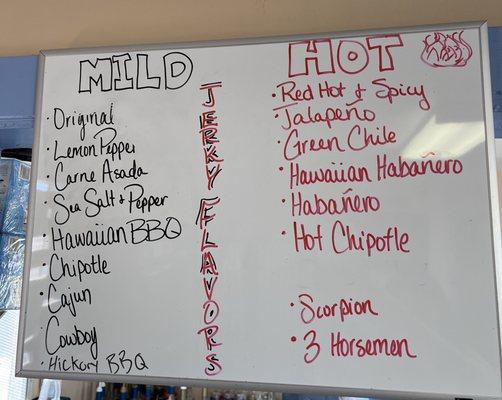 MILD
• Original
• Lemon Pepper
• Carne Asada
• Sea Salt & Pepper
• Hawaiian BBQ
• Chipotle
• Cajun
• Cowboy
• Hickory BBQ
JERKY FLAVORS
HOT
• Red Hot & Spicy
• Jalapeño
• Green Chile
• Hawaiian Habañero
• Habañero
• Hot Chipotle
• Scorpion
• 3 Horsemen